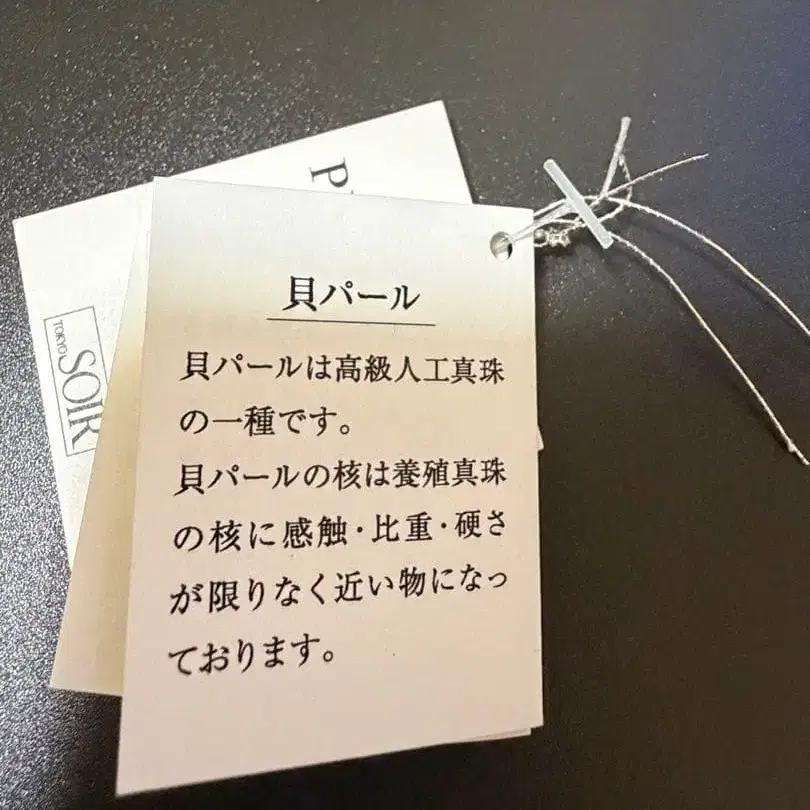 貝パール
貝パールは高級人工真珠
の一種です。
貝パールの核は養殖真珠
の核に感触・比重・硬さ
が限りなく近い物になっ
ております。
TOKYO
SOIR